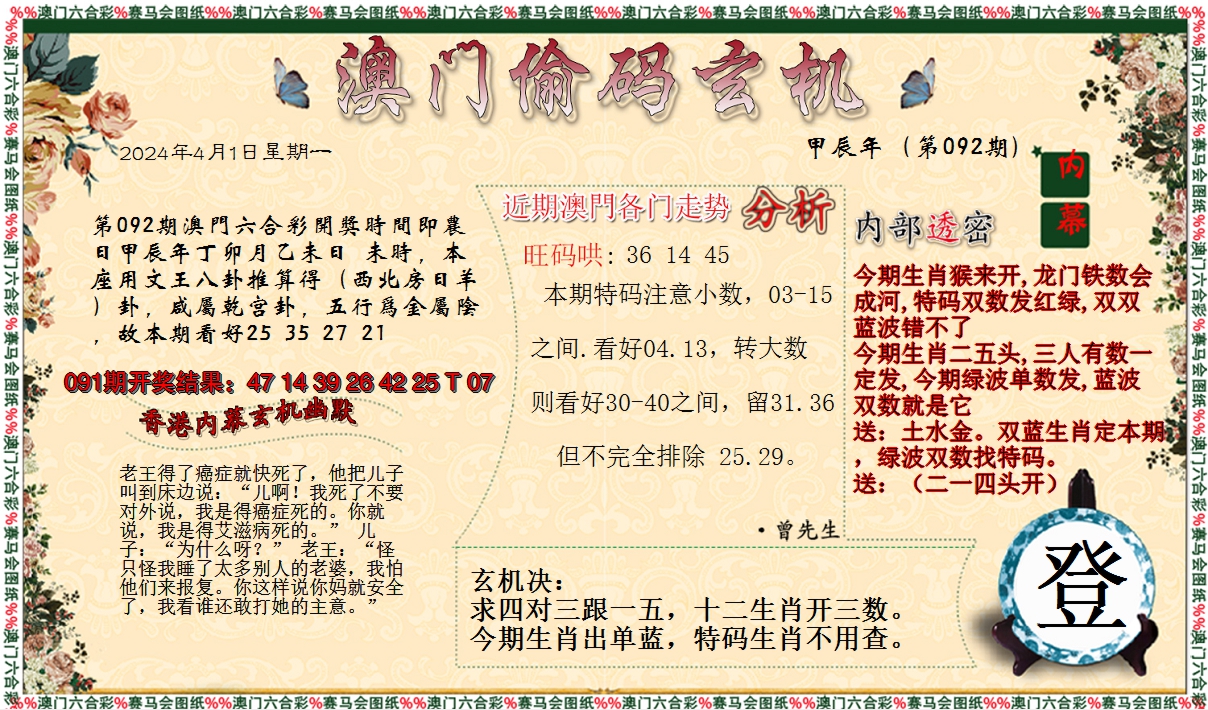 %%澳门六合彩%赛马会图纸%%澳门六合彩%赛马会图纸%%澳门六合彩%赛马会图纸%%澳门六合彩%赛马会图纸%%澳门六合彩%赛马会图纸%%澳门六合彩%赛马会图纸%%
澳门偷码玄机
2024年4月1日星期一
甲辰年（第092期）
内幕
第092期澳門六合彩開獎時間即農
日甲辰年丁卯月乙未日 未時，本
座用文王八卦推算得（西北房日羊
）卦，咸屬乾宫卦，五行爲金屬陰
，故本期看好25 35 27 21
091期开奖结果：47 14 39 26 42 25 T 07
香港内幕玄机幽默
老王得了癌症就快死了，他把儿子
叫到床边说：“儿啊！我死了不要
对外说，我是得癌症死的。你就
说，我是得艾滋病死的。” 儿
子：“为什么呀？” 老王：“怪
只怪我睡了太多别人的老婆，我怕
他们来报复。你这样说你妈就安全
了，我看谁还敢打她的主意。”
近期澳門各门走势 分析
旺码哄: 36 14 45
本期特码注意小数，03-15
之间.看好04.13，转大数
则看好30-40之间，留31.36
但不完全排除 25.29。
·曾先生
内部透密
今期生肖猴来开,龙门铁数会
成河,特码双数发红绿,双双
蓝波错不了
今期生肖二五头,三人有数一
定发,今期绿波单数发,蓝波
双数就是它
送：土水金。双蓝生肖定本期
，绿波双数找特码。
送：（二一四头开）
玄机决：
求四对三跟一五，十二生肖开三数。
今期生肖出单蓝，特码生肖不用查。
登
%%澳门六合彩%赛马会图纸%%澳门六合彩%赛马会图纸%%澳门六合彩%赛马会图纸%%澳门六合彩%赛马会图纸%%澳门六合彩%赛马会图纸%%澳门六合彩%赛马会图纸%%